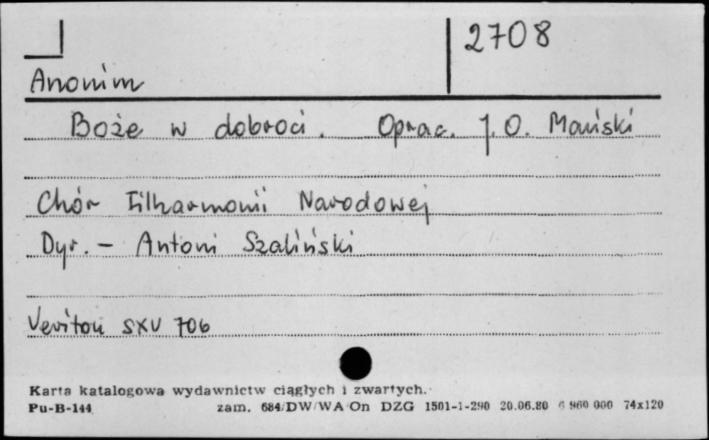 2708
Anonim
Boże w dobroci. Oprac. J. O. Mański
Chór Filharmonii Narodowej
Dyr. - Antoni Szaliński
Veriton SXV 706
Karta katalogowa wydawnictw ciągłych i zwartych.
Pu-B-144 zam. 684/DW/WA/On DZG 1501-1-290 20.06.80 6 960 000 74x120